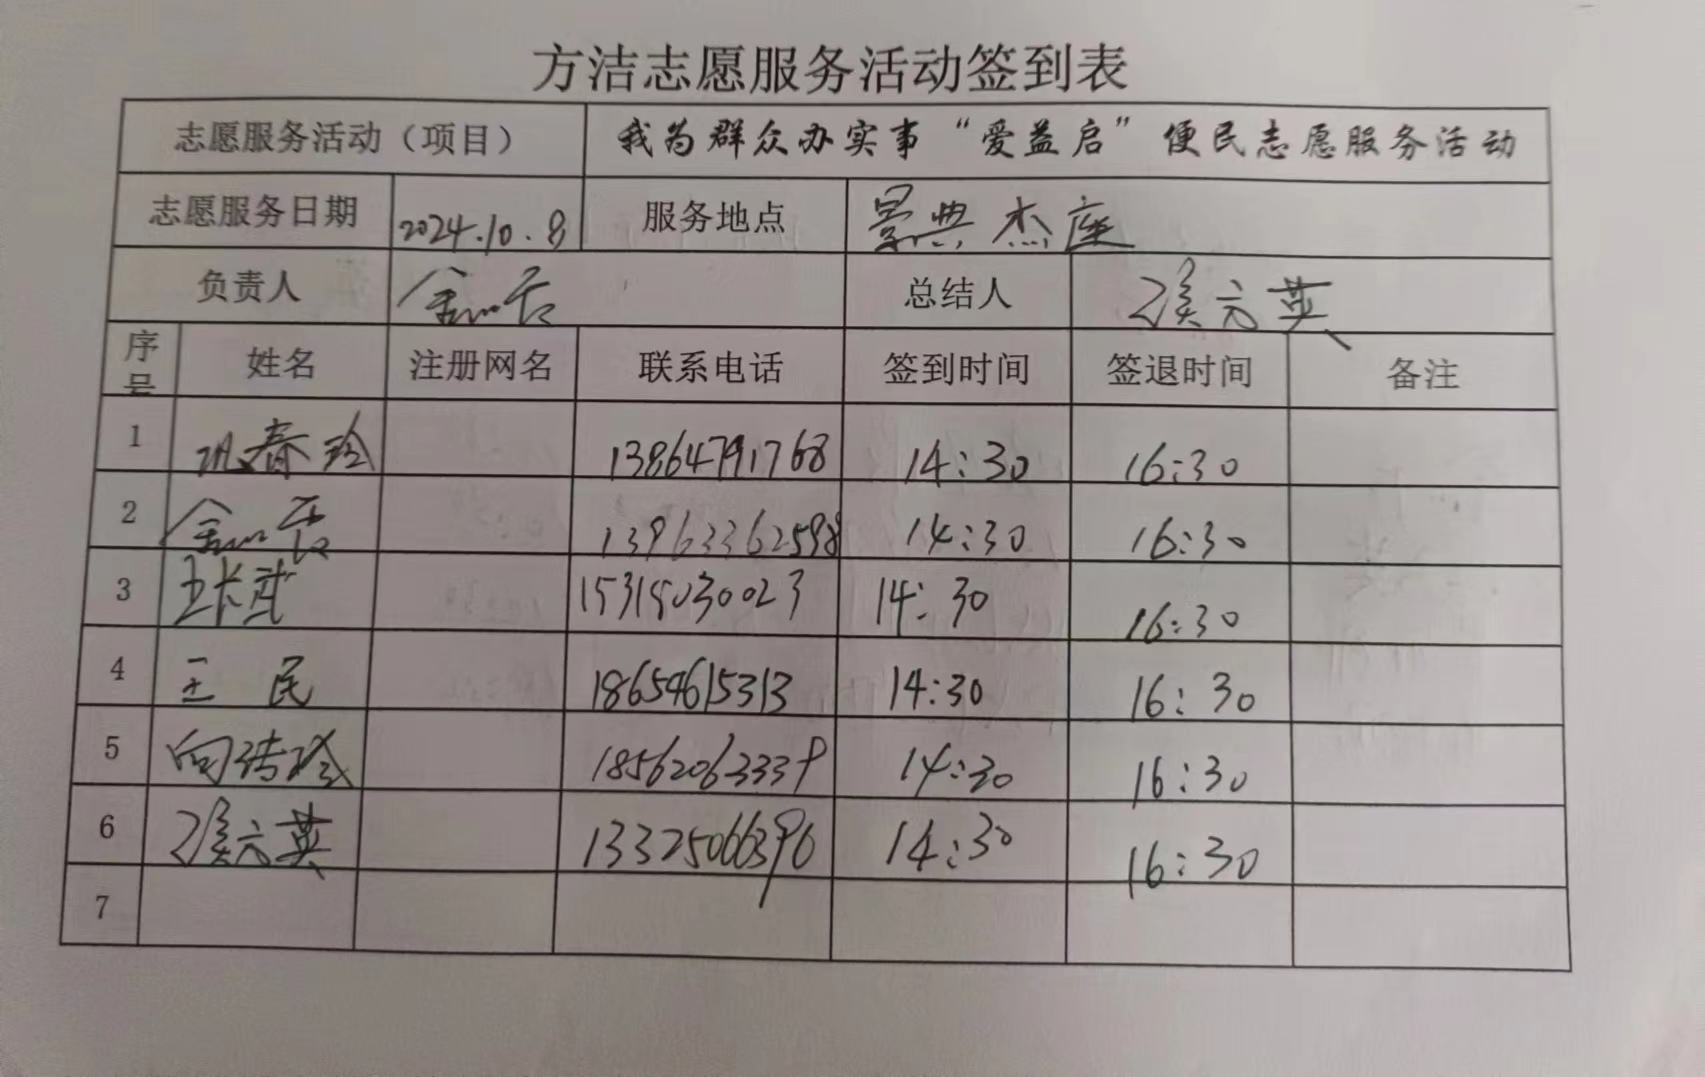 方洁志愿服务活动签到表
志愿服务活动（项目） 我为群众办实事“爱益启”便民志愿服务活动
志愿服务日期 2024.10.8 服务地点 景典杰座
负责人 总结人 侯元英
序号 姓名 注册网名 联系电话 签到时间 签退时间 备注
1 巩春玲 13864791768 14:30 16:30
2 13963362598 14:30 16:30
3 15315030023 14:30 16:30
4 王民 18654615313 14:30 16:30
5 向转玲 18562063339 14:30 16:30
6 侯元英 13325066396 14:30 16:30
7